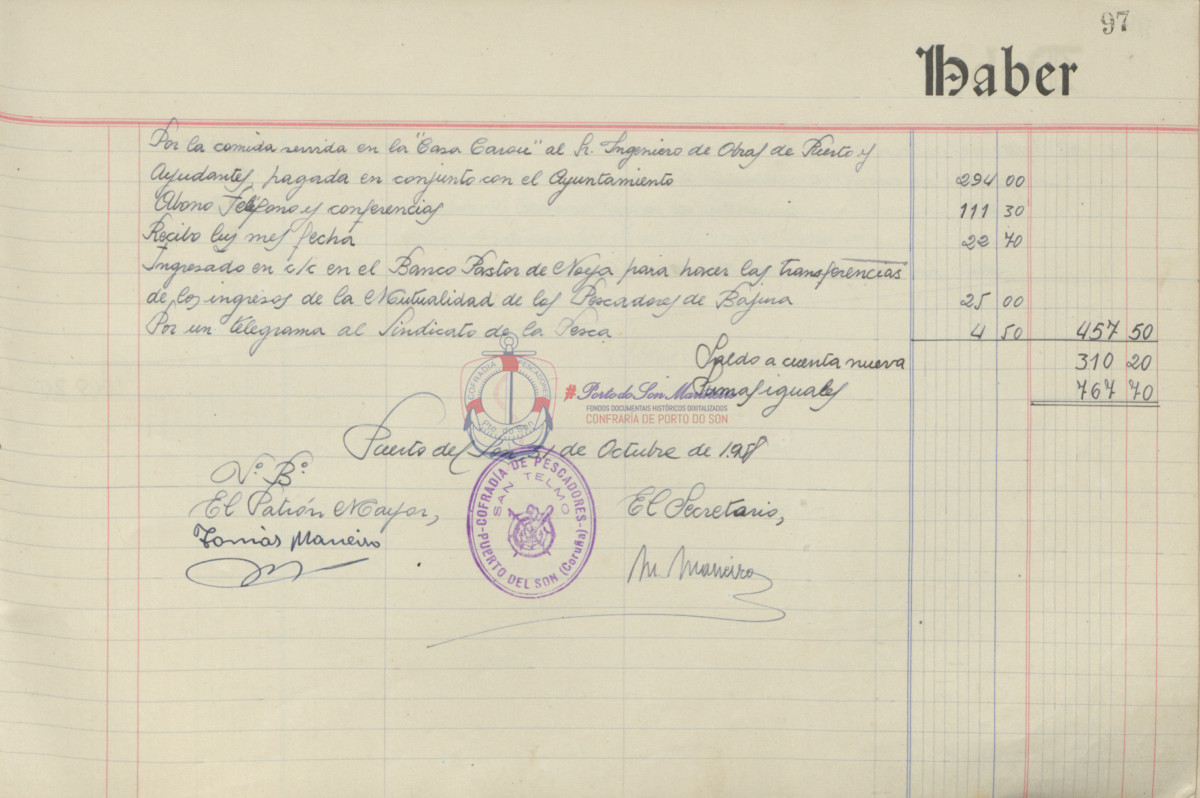 97
Haber
Por la comida servida en la "Casa Carou" al Sr. Ingeniero de Obras de Puerto y
Ayudantes, pagada en conjunto con el Ayuntamiento 294 00
Abono Teléfono y conferencias 111 30
Recibo luz mes fecha 22 70
Ingresado en c/c en el Banco Pastor de Noya para hacer las transferencias
de los ingresos de la Mutualidad de los Pescadores de Bajura 25 00
Por un telegrama al Sindicato de la Pesca 4 50 457 50
Saldo a cuenta nueva 310 20
Sumas iguales 767 70
COFRADÍA PESCADORES
Pto. do Son
#Porto do Son
FONDOS DOCUMENTAIS HISTÓRICOS DIXITALIZADOS
CONFRARÍA DE PORTO DO SON
Puerto del Son 31 de Octubre de 1.958
Vº. Bº.
El Patrón Mayor,
El Secretario,
Tomás Maneiro
M. Maneiro
COFRADÍA DE PESCADORES
SAN TELMO
PUERTO DEL SON (Coruña)